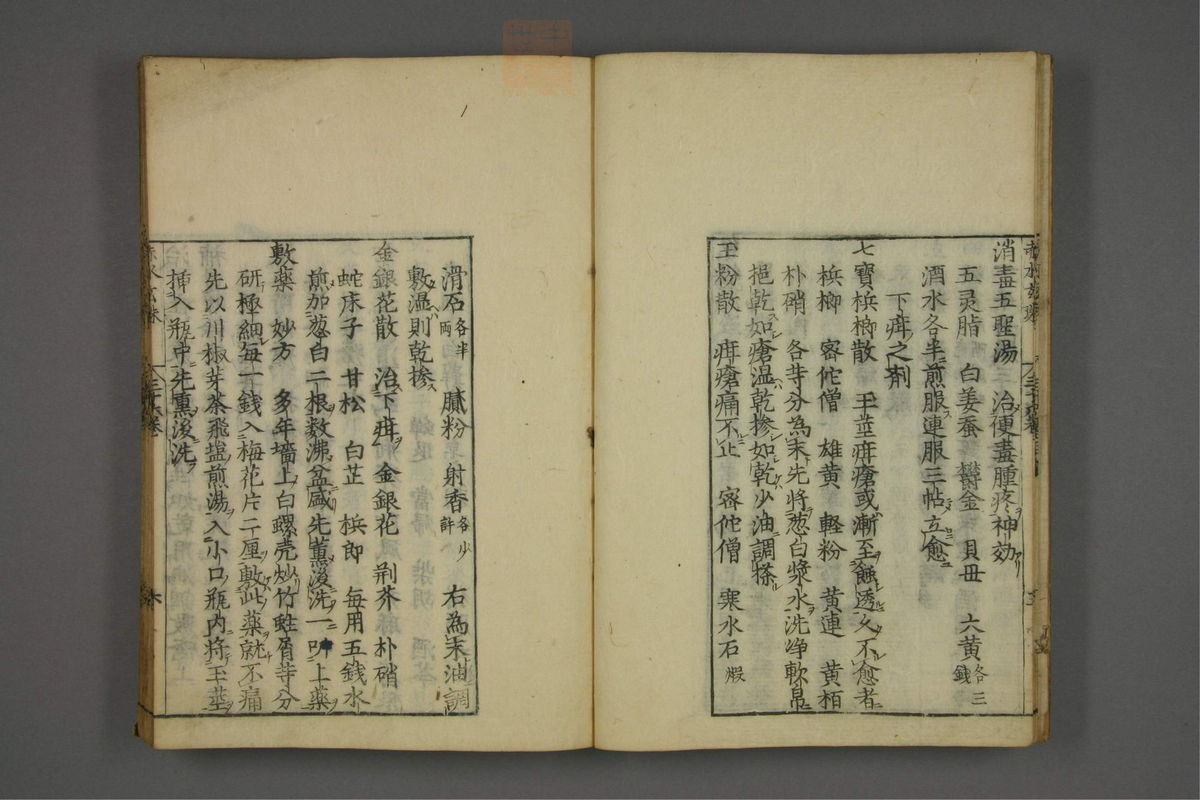 消毒五聖湯　治便毒腫疼神効
五灵脂　白姜蚕　欝金　貝毋　大黄各三錢
酒水各半煎服連服三帖立愈
下疳之剤
七寶梹榔散　玉莖疳瘡或漸至蝕透久不愈者
梹榔　密佗僧　雄黄　軽粉　黄連　黄栢
朴硝　各等分為末先將葱白漿水洗浄軟帛
挹乾如瘡温乾摻如乾少油調搽
玉粉散　疳瘡痛不止　密佗僧　寒水石煅
滑石各半両　膩粉　射香各少許　右為末油調
敷温則乾摻
金銀花散　治下疳　金銀花　荊芥　朴硝
蛇床子　甘松　白芷　梹郎　毎用五錢水
煎加葱白二根数沸盆盛先薫後洗一上藥
敷藥　妙方　多年墻上白螺壳炒竹蛀屑等分
研極細毎一錢入梅花片二厘敷此藥就不痛
先以川椒芽茶飛塩煎湯入小口瓶内将玉莖
挿入瓶中先熏後洗